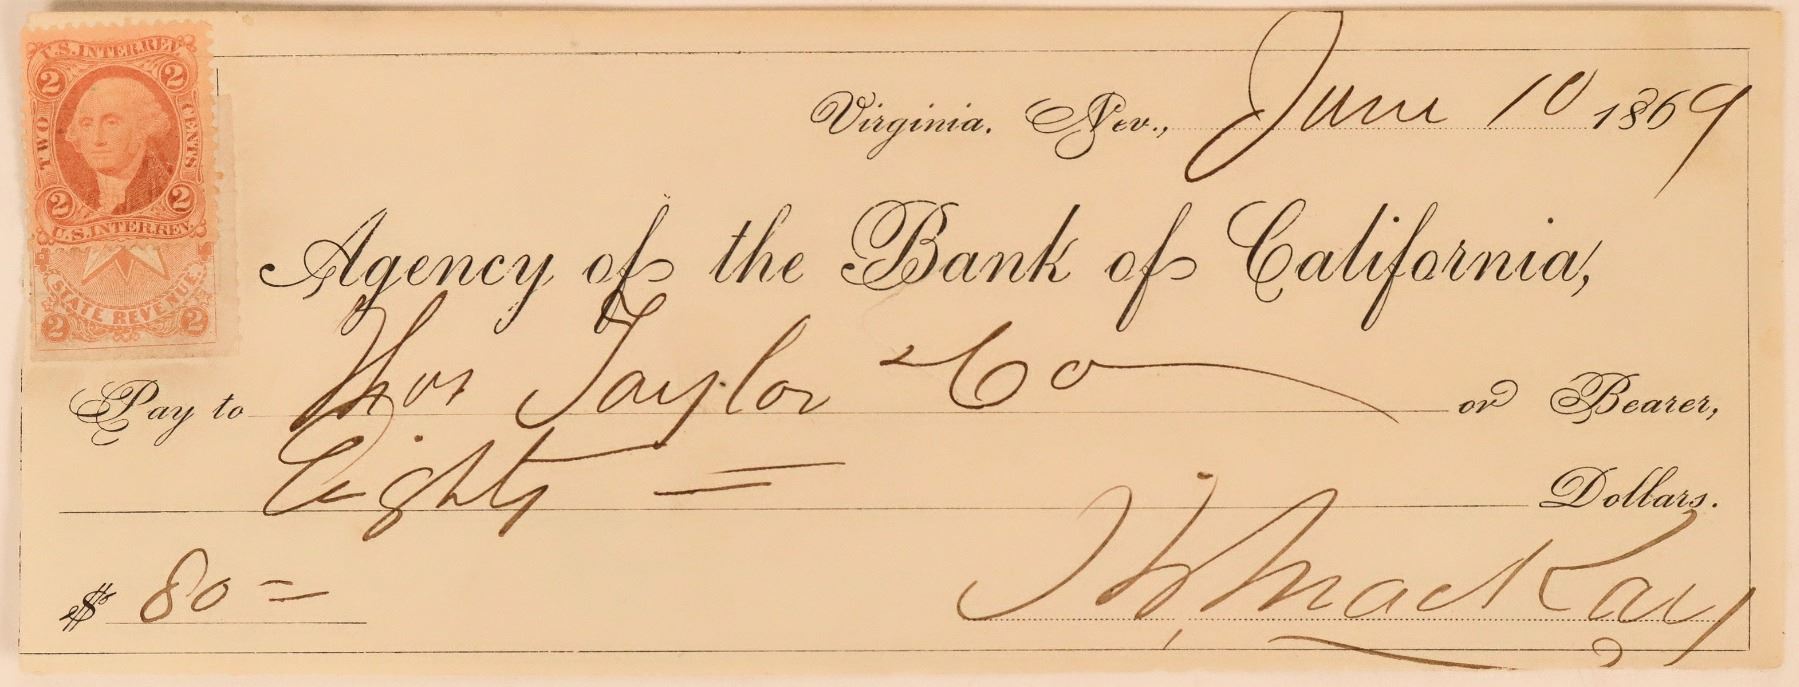 U.S. INTER. REV.
2 2
TWO CENTS.
2 2
U.S. INTER. REV.
STATE REVENUE.
2 2
Virginia, Nev., June 10 1869
Agency of the Bank of California,
Pay to Thos Taylor & Co or Bearer,
Eighty = Dollars.
$ 80 =
MacKay